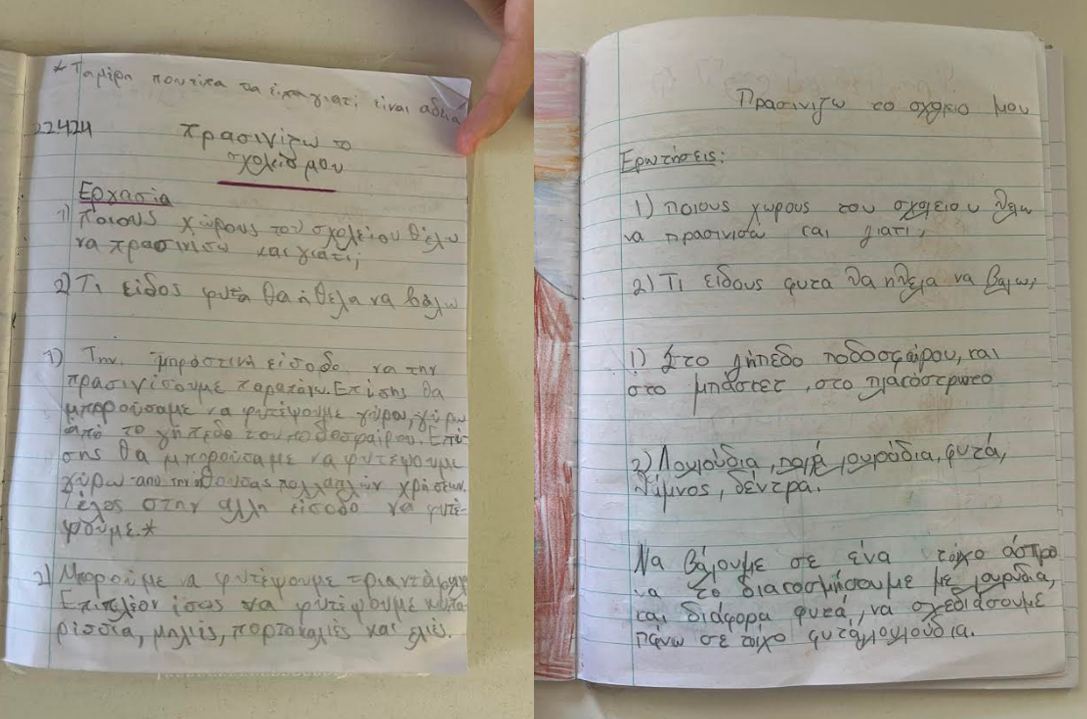 * Τα μέρη που είπα τα είπα γιατί είναι αδεια
22424
πρασινίζω το
σχολείο μου
Εργασία
1) Ποιους χώρους του σχολείου θέλω
να πρασινισω και γιατί;
2) Τι είδος φυτά θα ήθελα να βάλω
1) Την μπροστινή είσοδο να την
πρασινίσουμε παραπάνω. Επίσης θα
μπορούσαμε να φυτέψουμε γύρω, γύρω
από το γήπεδο του ποδοσφαίρου. Επί-
σης θα μπορούσαμε να φυτέψουμε
γύρω απο την θουσας πολλαπλών χρήσεων.
Τέλος στην άλλη είσοδο να φυτέ-
ψουμε.*
2) Μπορούμε να φυτέψουμε τριαντάφυλλα
Επιπλέον ίσως να φυτέψουμε κυπα-
ρίσσια, μηλιές, πορτοκαλιές και ελιές.
Πρασινιζω το σχολειο μου
Ερωτήσεις:
1) ποιους χωρους του σχολειου θελω
να πρασινισω και γιατι;
2) Τι ειδους φυτα θα ηθελα να βαλω;
1) Στο γήπεδο ποδοσφαίρου, και
στο μπάσκετ, στο πλακόστρωτο
2) Λουλούδια, λουλούδια, φυτά,
θάμνος, δέντρα.
Να βάλουμε σε ένα τοίχο άσπρο
να το διακοσμήσουμε με λουλούδια,
και διάφορα φυτά, να σχεδιάσουμε
πάνω σε τοίχο φυτά, λουλούδια.